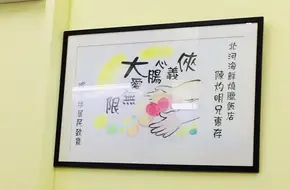 北河海鮮燒臘飯店
陳灼明兄惠存
俠義心腸
大愛無限
居民敬贈